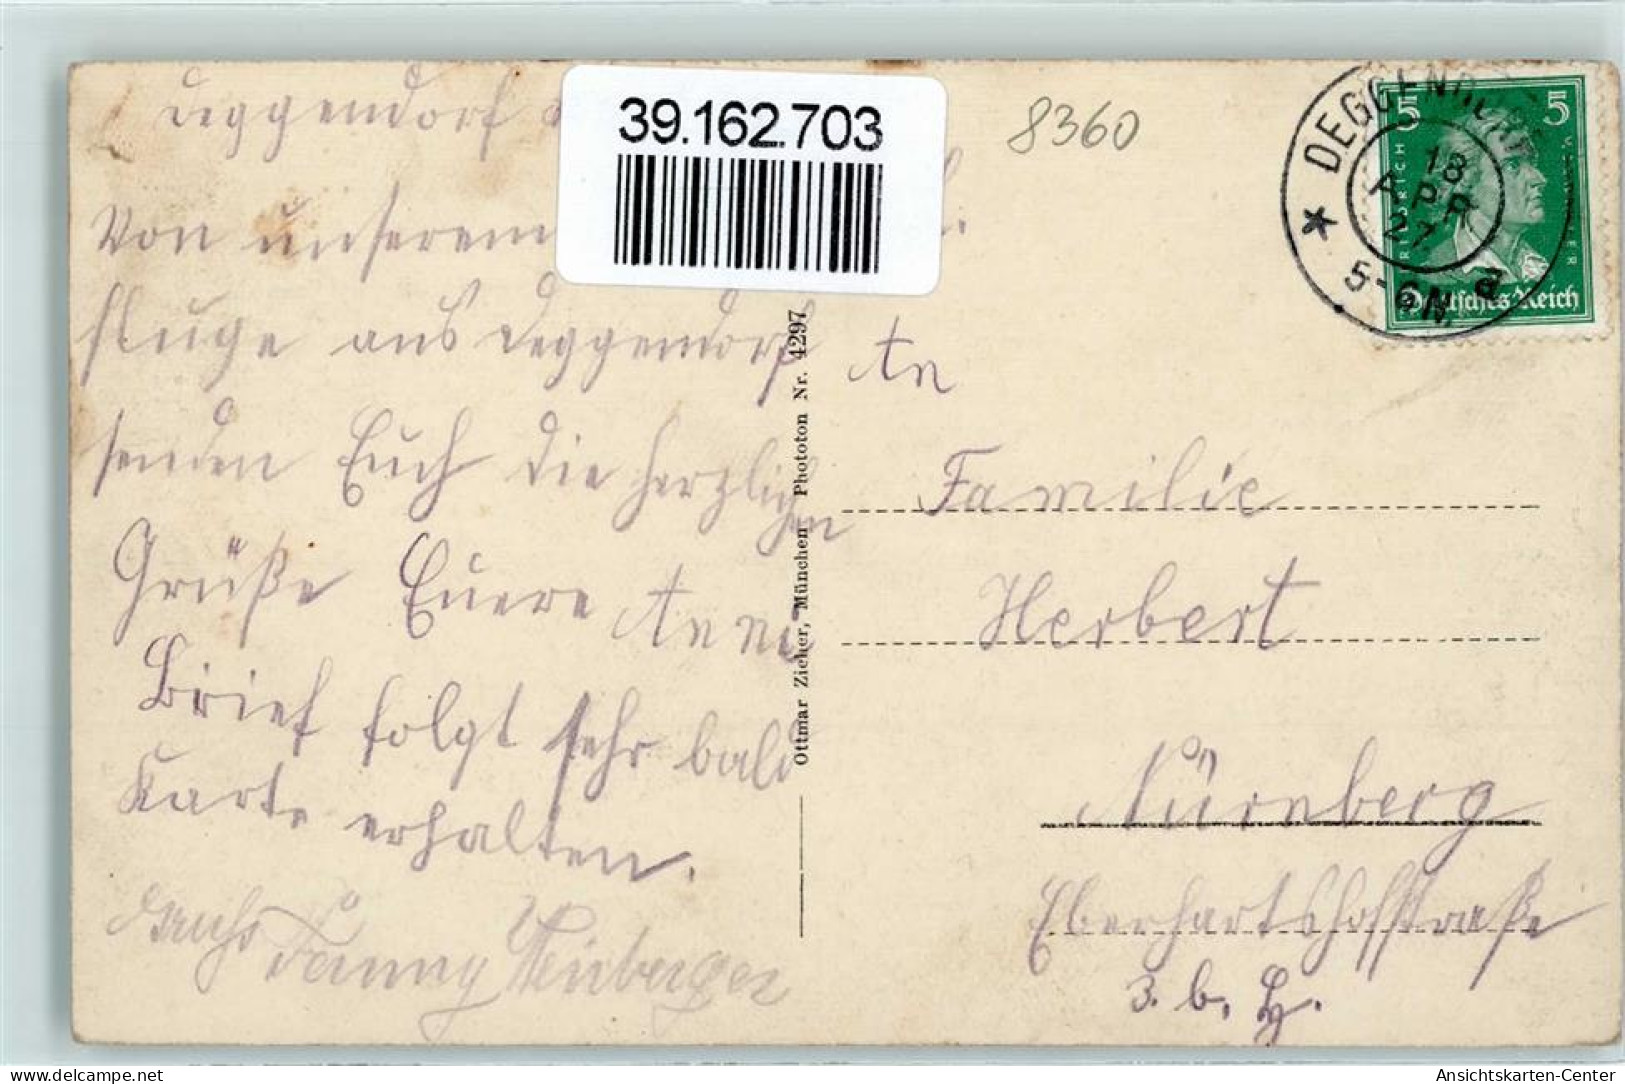 Deggendorf
Von unserem
fluge aus Deggendorf
senden Euch die herzlichen
Grüße Euere Anni
Brief folgt sehr bald
Karte erhalten.
Fanny Neuberger
39.162.703
8360
Ottmar Zieher, München Phototon Nr. 4297
DEGGENDORF
18
APR
27
5-6 N.
5 5
FRIEDRICH V. SCHILLER
Deutsches Reich
An
Familie
Herbert
Nürnberg
Eberhartshofstraße
3. b. H.
delcampe.net
Ansichtskarten-Center